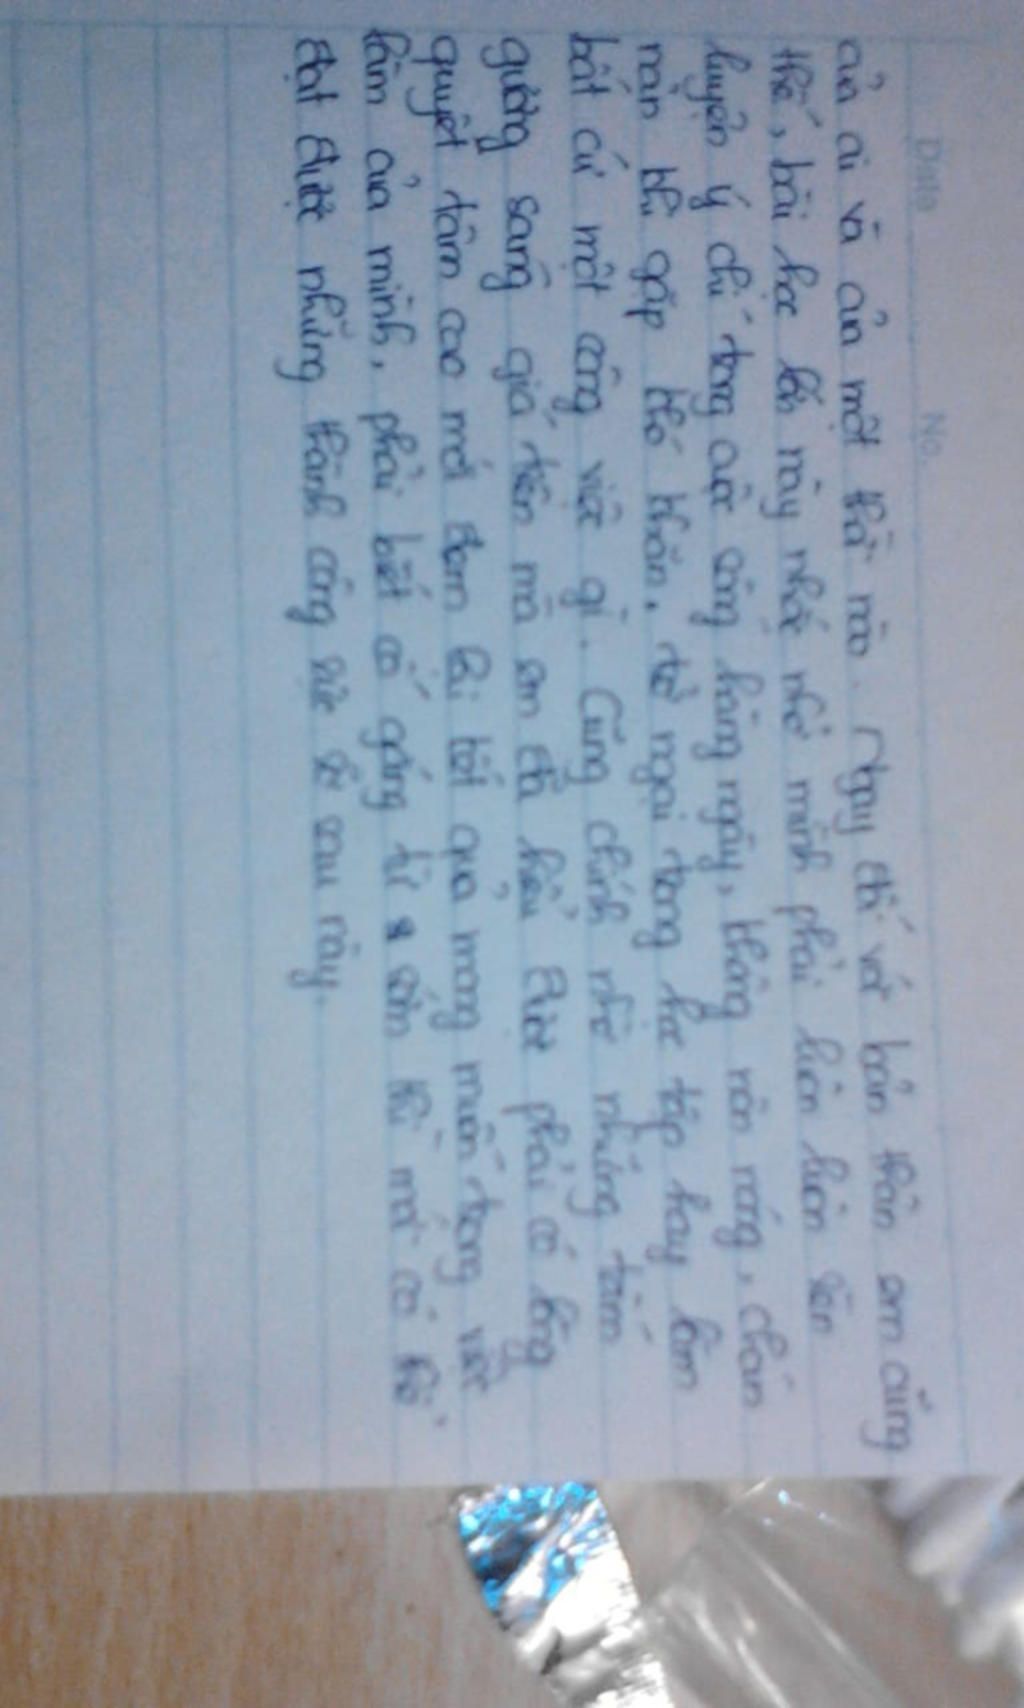 Date No.
của ai và của một thời nào. Ngay đối với bản thân em cũng
thế, bài học lớn này nhắc nhở mình phải luôn luôn rèn
luyện ý chí trong cuộc sống hàng ngày, không nôn nóng, chán
nản khi gặp khó khăn, trở ngại trong học tập hay làm
bất cứ một công việc gì. Cũng chính nhờ những tấm
gương sáng giá trên mà em đã hiểu được phải có lòng
quyết tâm cao mới đem lại kết quả mong muốn trong việc
làm của mình, phải biết cố gắng từ sớm thì mới có thể
đạt được những thành công rực rỡ sau này.